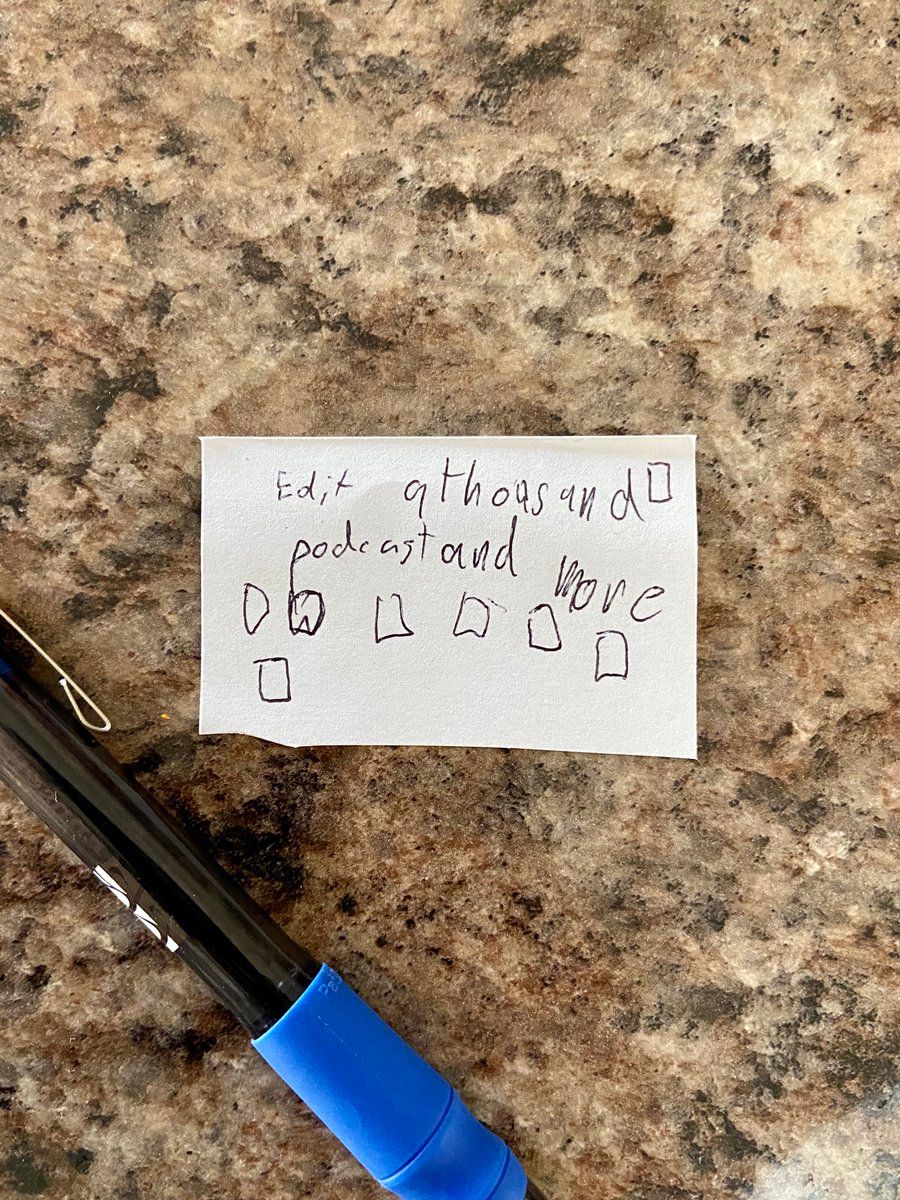 Edit a thousand
podcast and
more